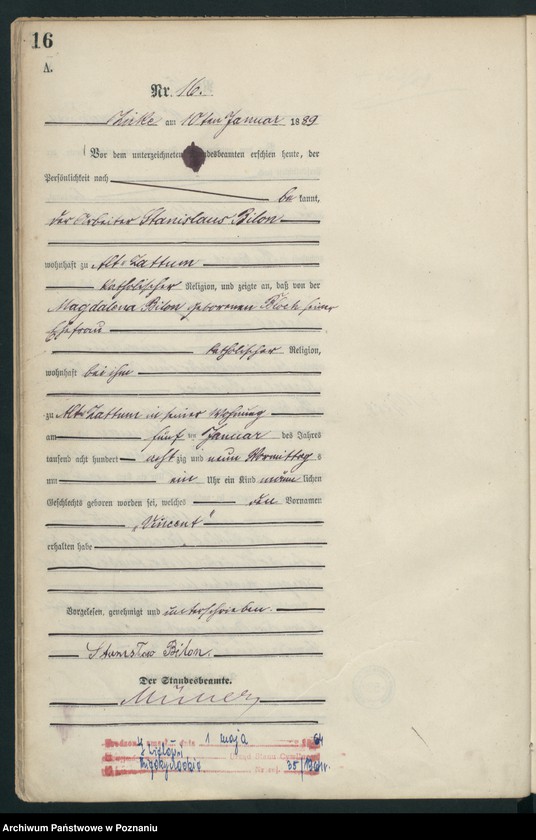 16
A.
Nr. 16.
Zirke am 10ten Januar 1889
Vor dem unterzeichneten Standesbeamten erschien heute, der
Persönlichkeit nach
be kannt,
der Arbeiter Stanislaus Bilon
wohnhaft zu Alt-Zattum
katholischer Religion, und zeigte an, daß von der
Magdalena Bilon geborenen Kloch seiner
Ehefrau
katholischer Religion,
wohnhaft bei ihm
zu Alt-Zattum in seiner Wohnung
am fünf ten Januar des Jahres
tausend acht hundert acht zig und neun Vormittag s
um ein Uhr ein Kind männ lichen
Geschlechts geboren worden sei, welches den Vornamen
„Vincent"
erhalten habe
Vorgelesen, genehmigt und unterschrieben.
Bilon.
Der Standesbeamte.
1 maja 64
35/1964r.
Archiwum Państwowe w Poznaniu